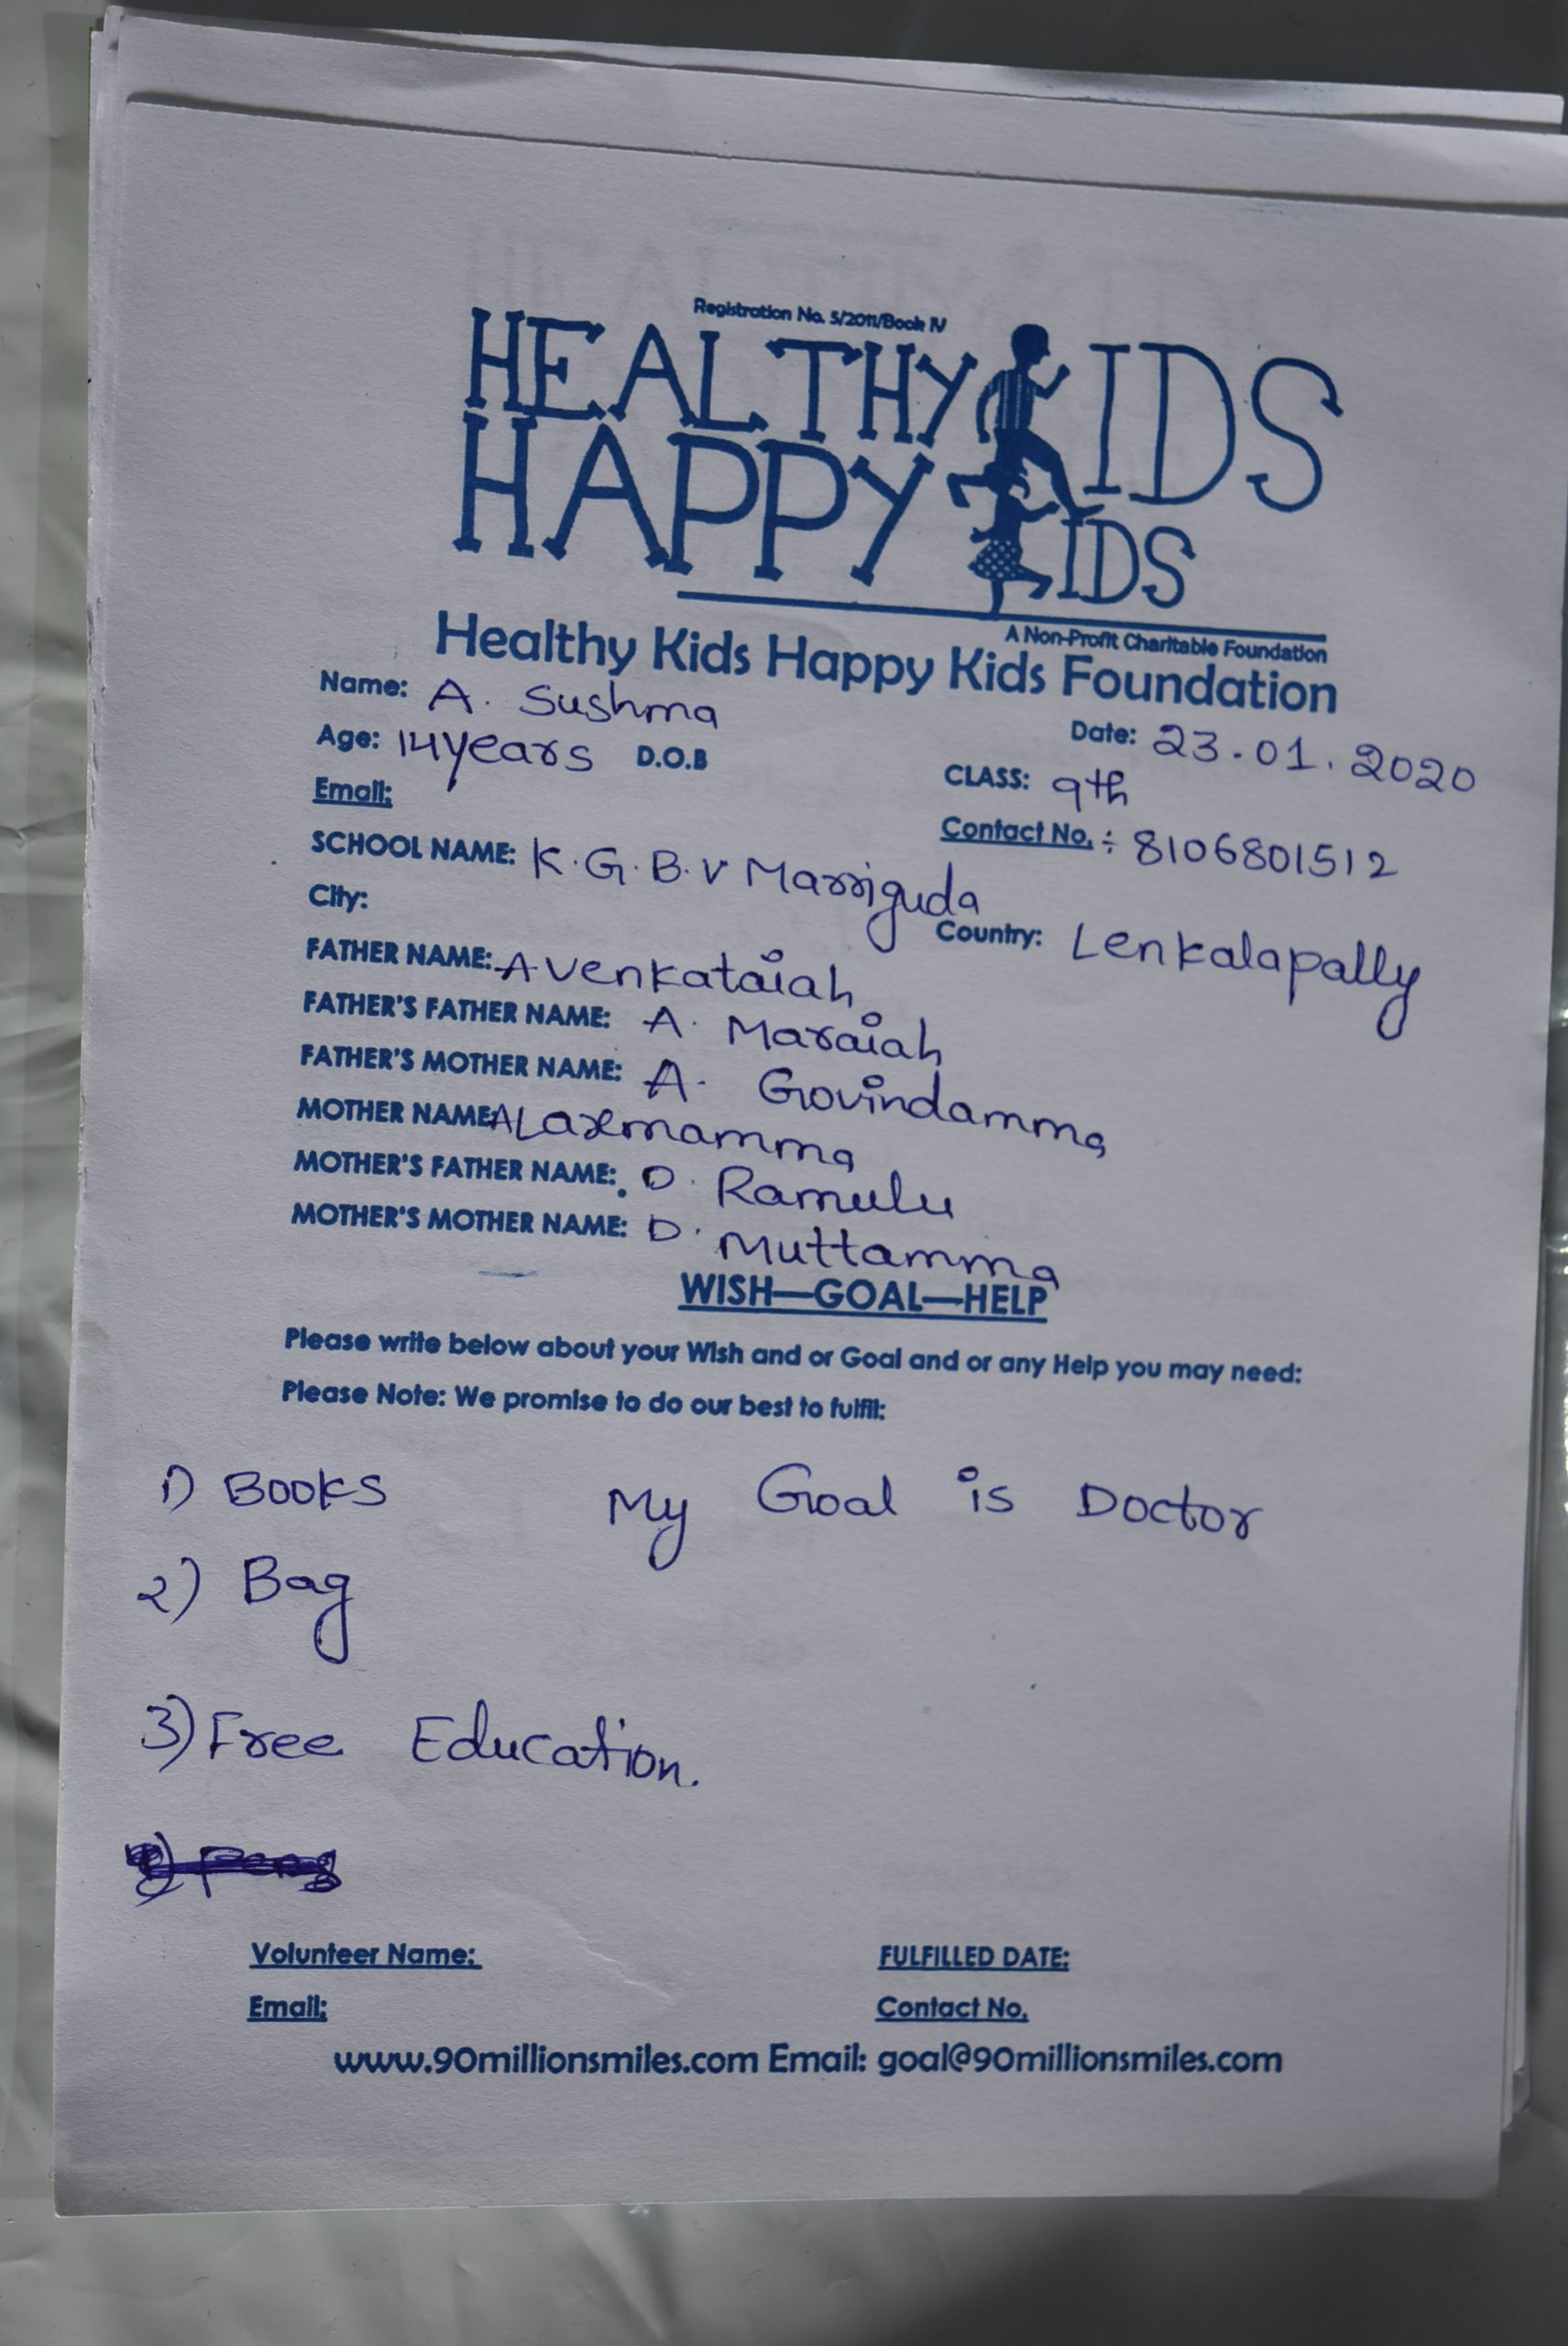 Registration No. 5/2011/Book IV
HEALTHY KIDS
HAPPY KIDS
A Non-Profit Charitable Foundation
Healthy Kids Happy Kids Foundation
Name: A. Sushma
Date: 23.01.2020
Age: 14years D.O.B
CLASS: 9th
Email:
Contact No. : 8106801512
SCHOOL NAME: K.G.B.V Marriguda
City:
Country: Lenkalapally
FATHER NAME: A Venkataiah
FATHER'S FATHER NAME: A. Maraiah
FATHER'S MOTHER NAME: A. Govindamma
MOTHER NAME: A Laxmamma
MOTHER'S FATHER NAME: D. Ramulu
MOTHER'S MOTHER NAME: D. Muttamma
WISH—GOAL—HELP
Please write below about your Wish and or Goal and or any Help you may need:
Please Note: We promise to do our best to fulfil:
1) Books My Goal is Doctor
2) Bag
3) Free Education.
Volunteer Name: FULFILLED DATE:
Email: Contact No.
www.90millionsmiles.com Email: goal@90millionsmiles.com